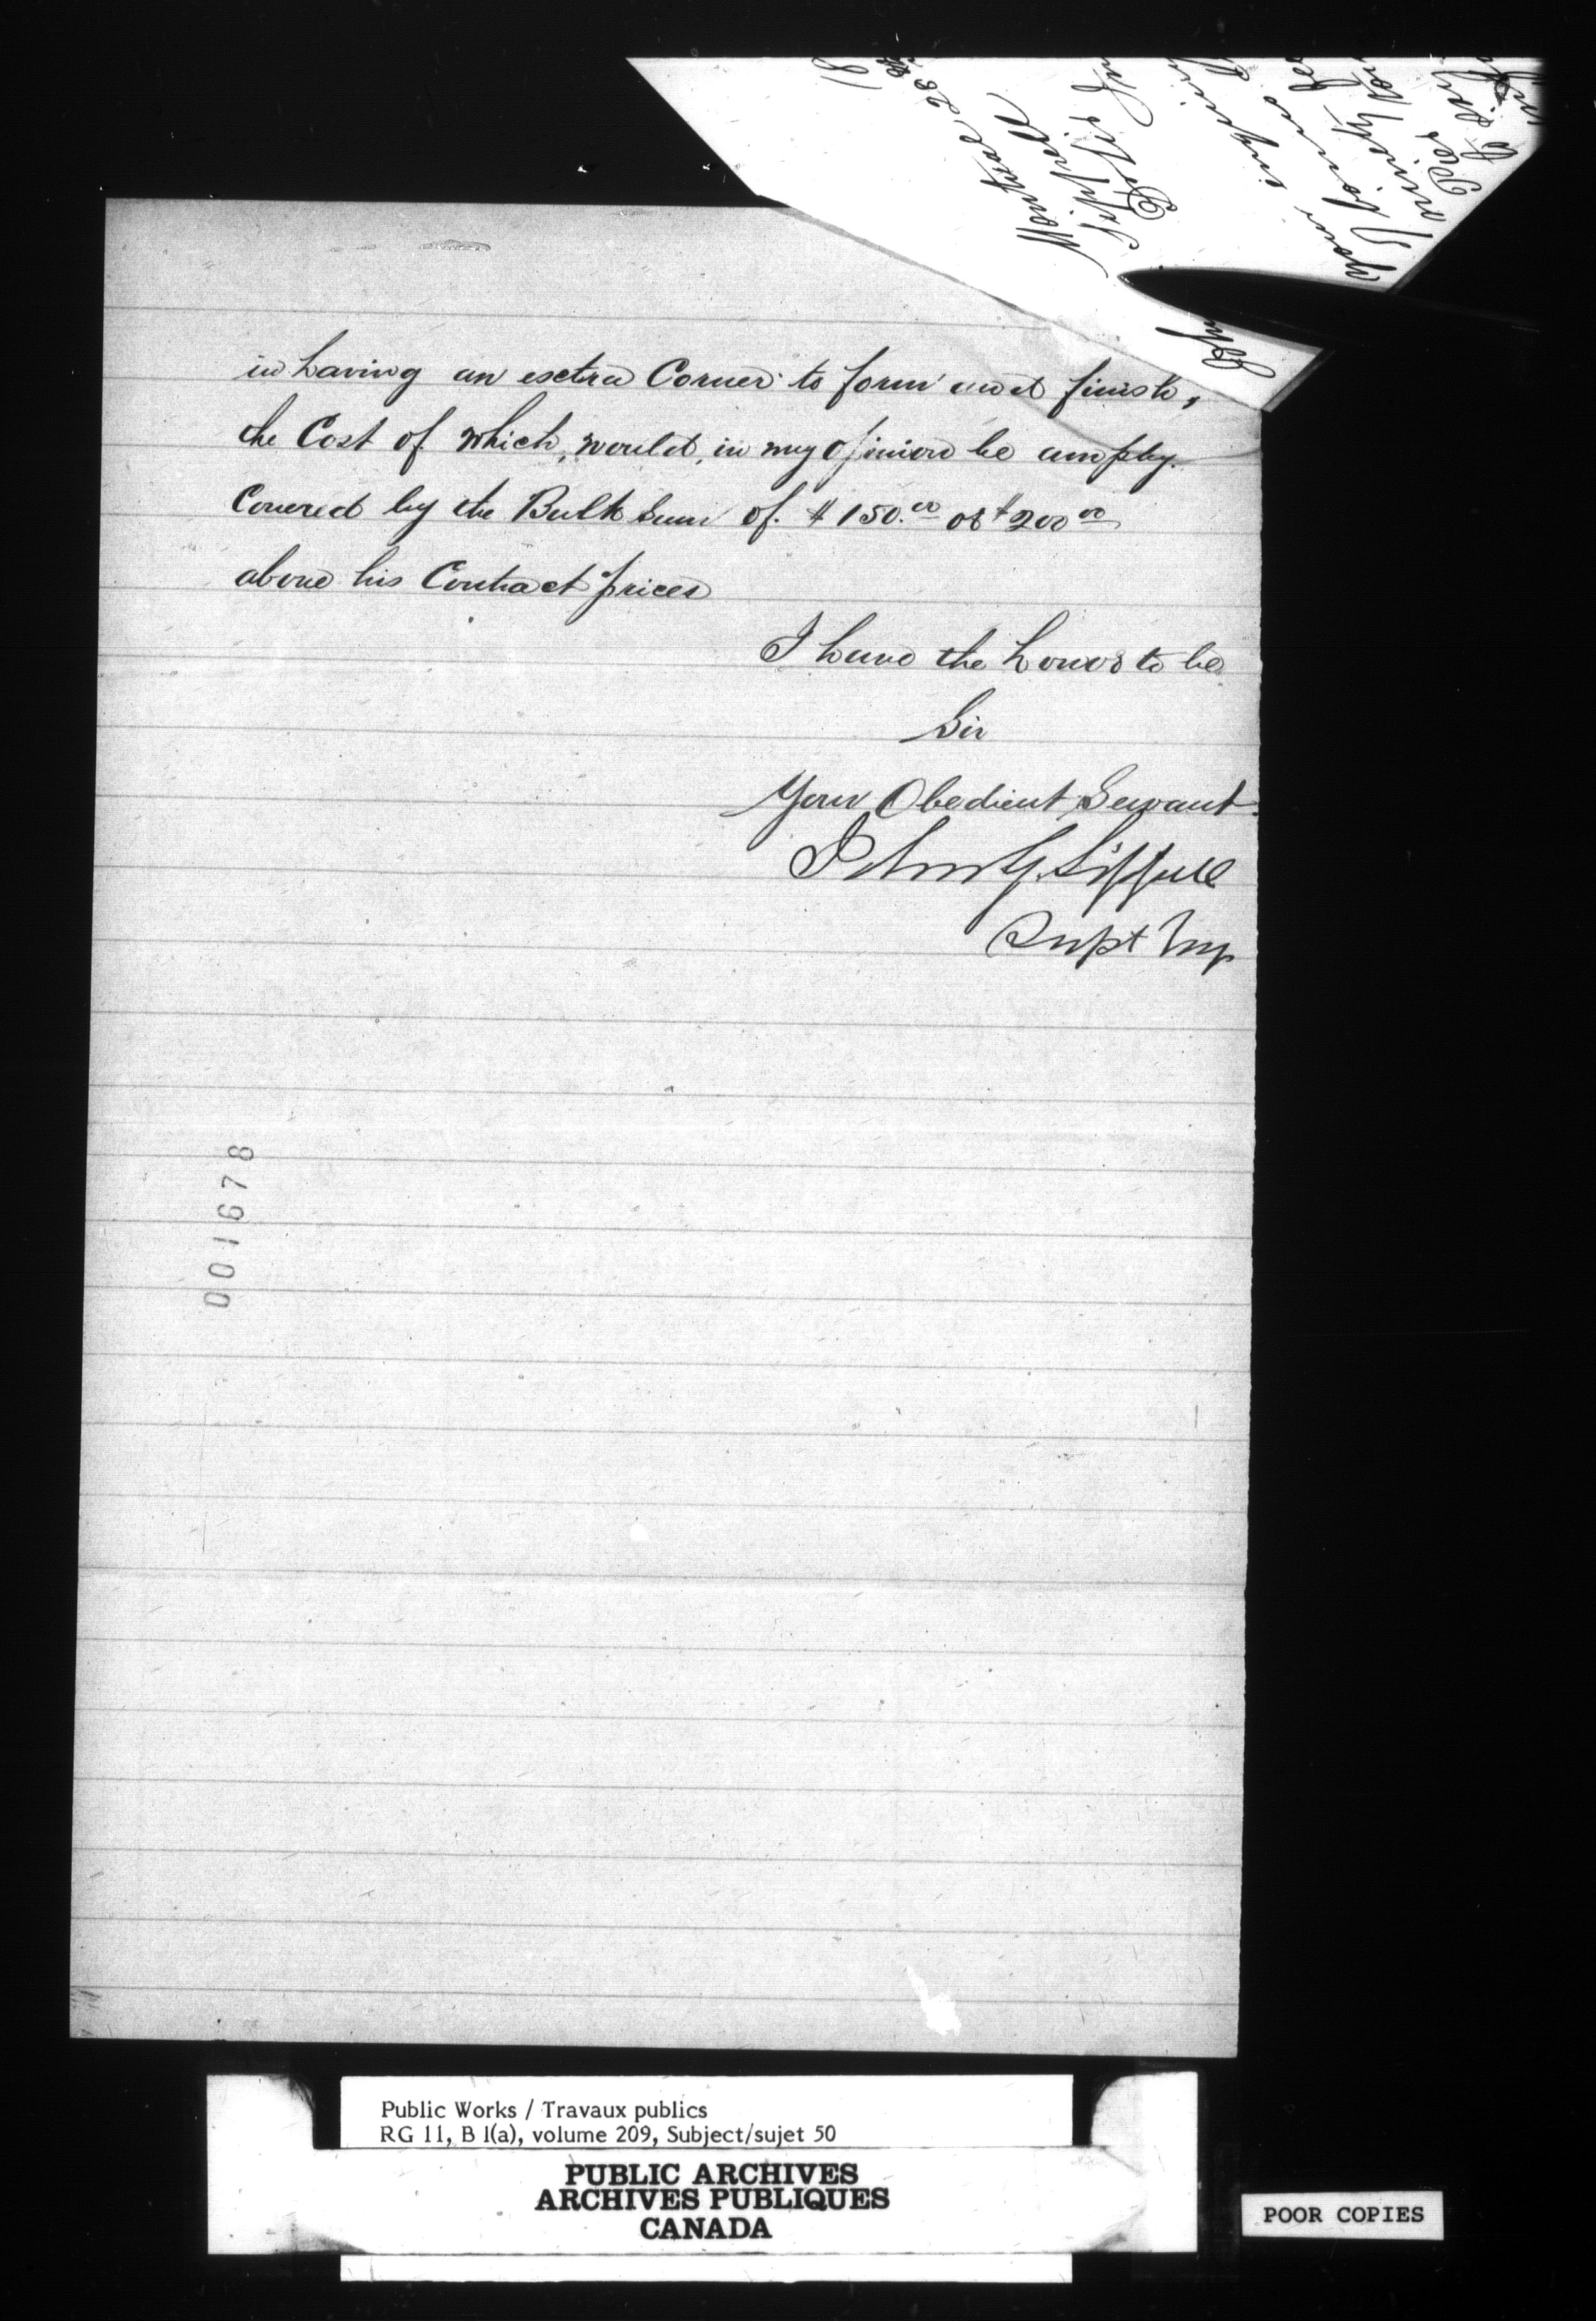 in having an esctra Corner to form and finish,
the Cost of which, would, in my opinion be amply
Covered by the Bulk Sum of. $150.00 or $200 00
above his Contract prices
I have the honor to be
Sir
Your Obedient Servant.
John G. Sippell
Supt Eng
001678
Montreal 28
Sippell
your
ninety
Public Works / Travaux publics
RG 11, B 1(a), volume 209, Subject/sujet 50
PUBLIC ARCHIVES
ARCHIVES PUBLIQUES
CANADA
POOR COPIES